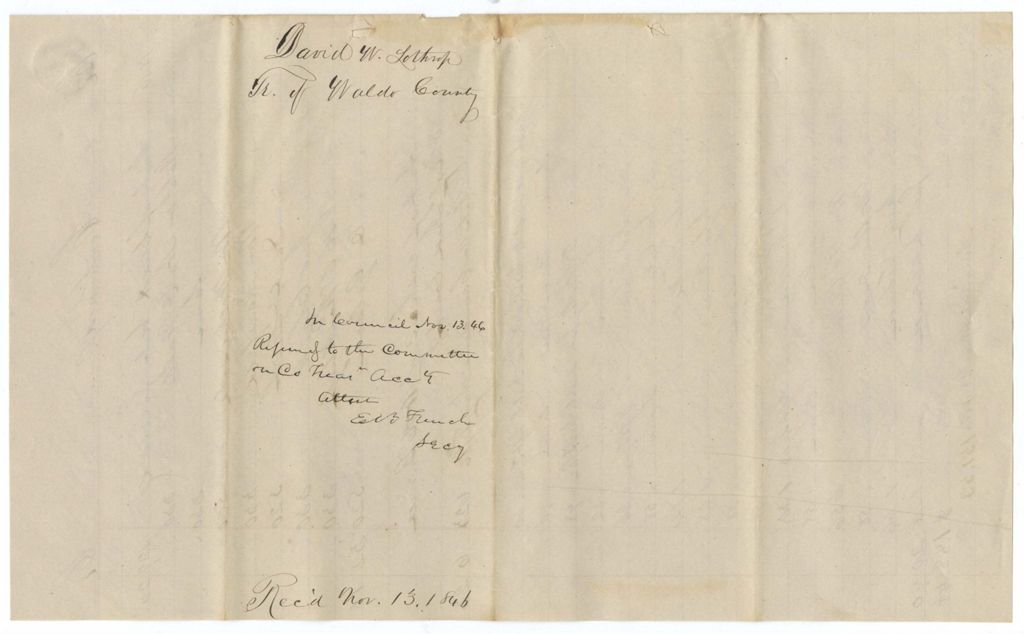 David W. Lothrop
Tr. of Waldo County
In Council Nov. 13. 46
Referred to the Committee
on Co Treasrs Acc'ts
Attest
French
Secy
Rec'd Nov. 13. 1846